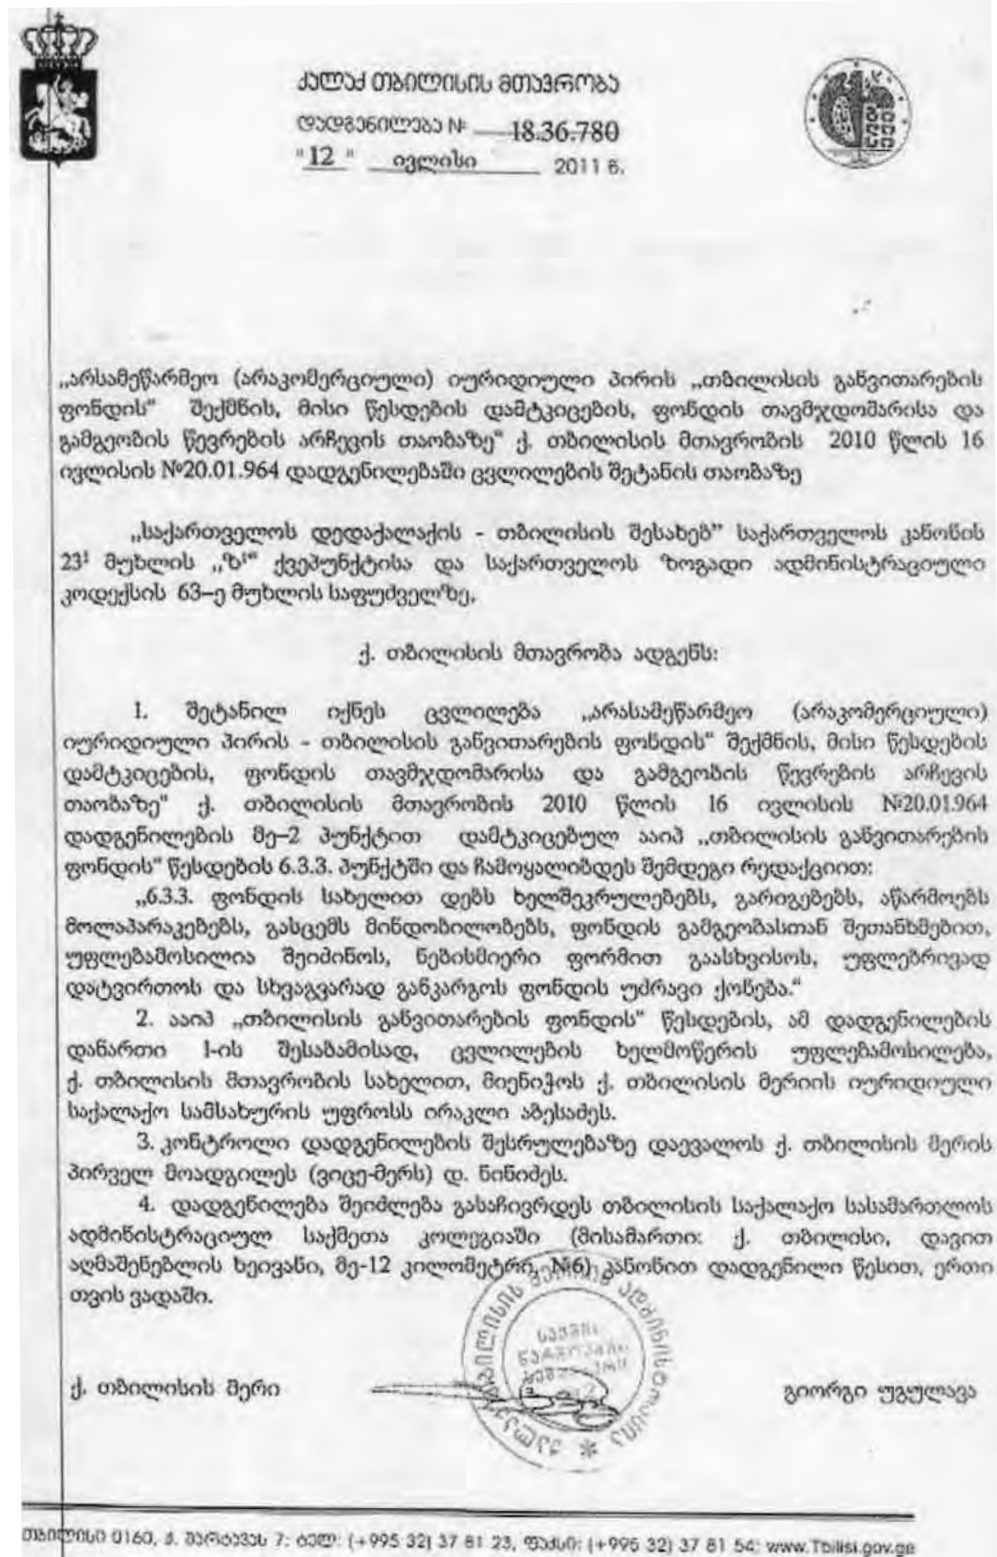 ქალაქ თბილისის მთავრობა
დადგენილება № 18.36.780
"12" ივლისი 2011 წ.
„არსამეწარმეო (არაკომერციული) იურიდიული პირის „თბილისის განვითარების
ფონდის" შექმნის, მისი წესდების დამტკიცების, ფონდის თავმჯდომარისა და
გამგეობის წევრების არჩევის თაობაზე" ქ. თბილისის მთავრობის 2010 წლის 16
ივლისის №20.01.964 დადგენილებაში ცვლილების შეტანის თაობაზე
„საქართველოს დედაქალაქის - თბილისის შესახებ" საქართველოს კანონის
23¹ მუხლის „ზ¹" ქვეპუნქტისა და საქართველოს ზოგადი ადმინისტრაციული
კოდექსის 63–ე მუხლის საფუძველზე,
ქ. თბილისის მთავრობა ადგენს:
1. შეტანილ იქნეს ცვლილება „არასამეწარმეო (არაკომერციული)
იურიდიული პირის - თბილისის განვითარების ფონდის" შექმნის, მისი წესდების
დამტკიცების, ფონდის თავმჯდომარისა და გამგეობის წევრების არჩევის
თაობაზე" ქ. თბილისის მთავრობის 2010 წლის 16 ივლისის №20.01.964
დადგენილების მე–2 პუნქტით დამტკიცებულ ააიპ „თბილისის განვითარების
ფონდის" წესდების 6.3.3. პუნქტში და ჩამოყალიბდეს შემდეგი რედაქციით:
„6.3.3. ფონდის სახელით დებს ხელშეკრულებებს, გარიგებებს, აწარმოებს
მოლაპარაკებებს, გასცემს მინდობილობებს, ფონდის გამგეობასთან შეთანხმებით,
უფლებამოსილია შეიძინოს, ნებისმიერი ფორმით გაასხვისოს, უფლებრივად
დატვირთოს და სხვაგვარად განკარგოს ფონდის უძრავი ქონება."
2. ააიპ „თბილისის განვითარების ფონდის" წესდების, ამ დადგენილების
დანართი 1-ის შესაბამისად, ცვლილების ხელმოწერის უფლებამოსილება,
ქ. თბილისის მთავრობის სახელით, მიენიჭოს ქ. თბილისის მერიის იურიდიული
საქალაქო სამსახურის უფროსს ირაკლი აბესაძეს.
3. კონტროლი დადგენილების შესრულებაზე დაევალოს ქ. თბილისის მერის
პირველ მოადგილეს (ვიცე-მერს) დ. ნინიძეს.
4. დადგენილება შეიძლება გასაჩივრდეს თბილისის საქალაქო სასამართლოს
ადმინისტრაციულ საქმეთა კოლეგიაში (მისამართი: ქ. თბილისი, დავით
აღმაშენებლის ხეივანი, მე-12 კილომეტრი, №6) კანონით დადგენილი წესით, ერთი
თვის ვადაში.
ქ. თბილისის მერი გიორგი უგულავა
თბილისი 0160, ჟ. შარტავას 7; ტელ: (+995 32) 37 81 23, ფაქსი: (+995 32) 37 81 54; www.Tbilisi.gov.ge